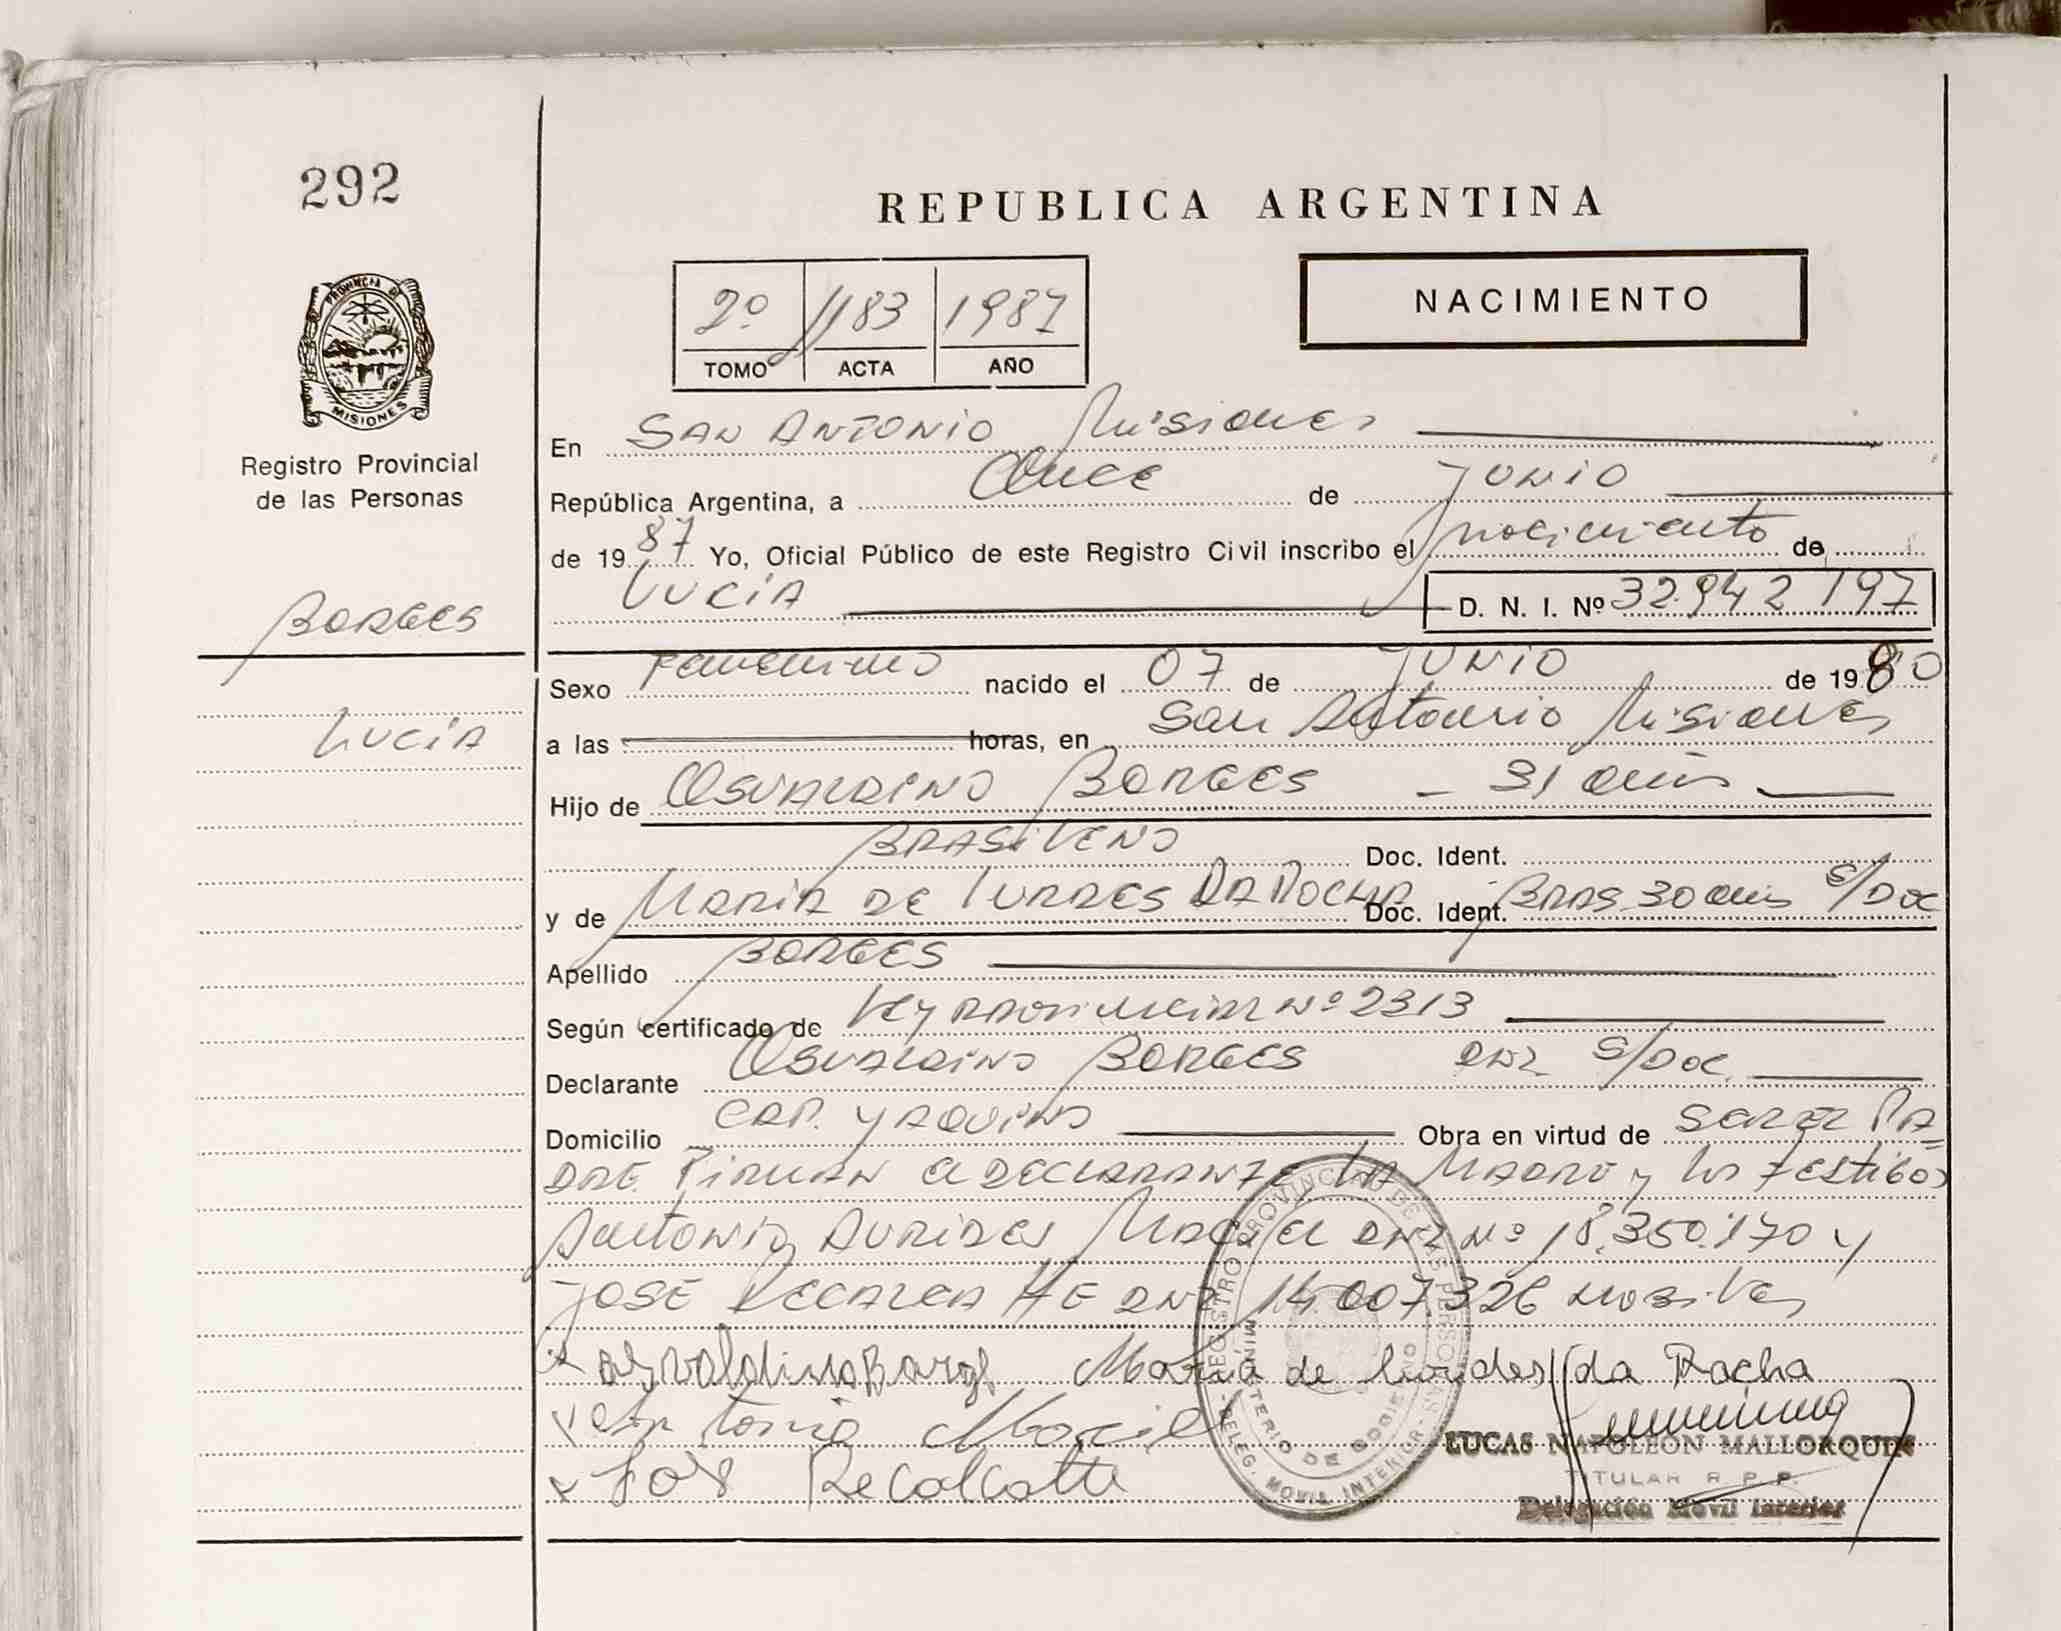 292
REPUBLICA ARGENTINA
2º 1183 1987
TOMO ACTA AÑO
NACIMIENTO
PROVINCIA DE MISIONES
Registro Provincial
de las Personas
BORGES
LUCÍA
En SAN ANTONIO Misiones
República Argentina, a Once de JUNIO
de 1987 Yo, Oficial Público de este Registro Civil inscribo el nacimiento de
LUCÍA D. N. I. Nº 32.942 197
Sexo Femenino nacido el 07 de JUNIO de 1980
a las horas, en San Antonio Misiones
Hijo de OSVALDINO BORGES - 31 años
BRASILENO Doc. Ident.
y de MARIA DE LURDES DA ROCHA Doc. Ident. BRAS. 30 años S/DOC
Apellido BORGES
Según certificado de LEY PROVINCIAL Nº 2313
Declarante OSVALDINO BORGES DNI S/DOC.
Domicilio CAP. YAQUINO Obra en virtud de SER EL PA=
DRE. FIRMAN el DECLARANTE, LA MADRE y los TESTIGOS
Antonio AURIDES Maciel DNI Nº 18.350.170 y
JOSÉ DNI 14.007326
Maria de lurdes da Rocha
Antonio Maciel
LUCAS NAPOLEON MALLORQUIN
TITULAR R. P. P.
Delegación Movil Interior
REGISTRO PROVINCIAL DE LAS PERSONAS - DELEG. MOVIL INTERIOR -
MINISTERIO DE GOBIERNO